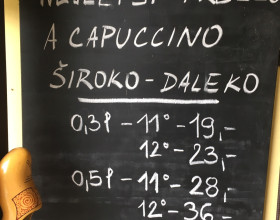 A CAPUCCINO
ŠIROKO-DALEKO
0,3l-11°-19,-
12°-23,-
0,5l-11°-28,-
12°-36,-